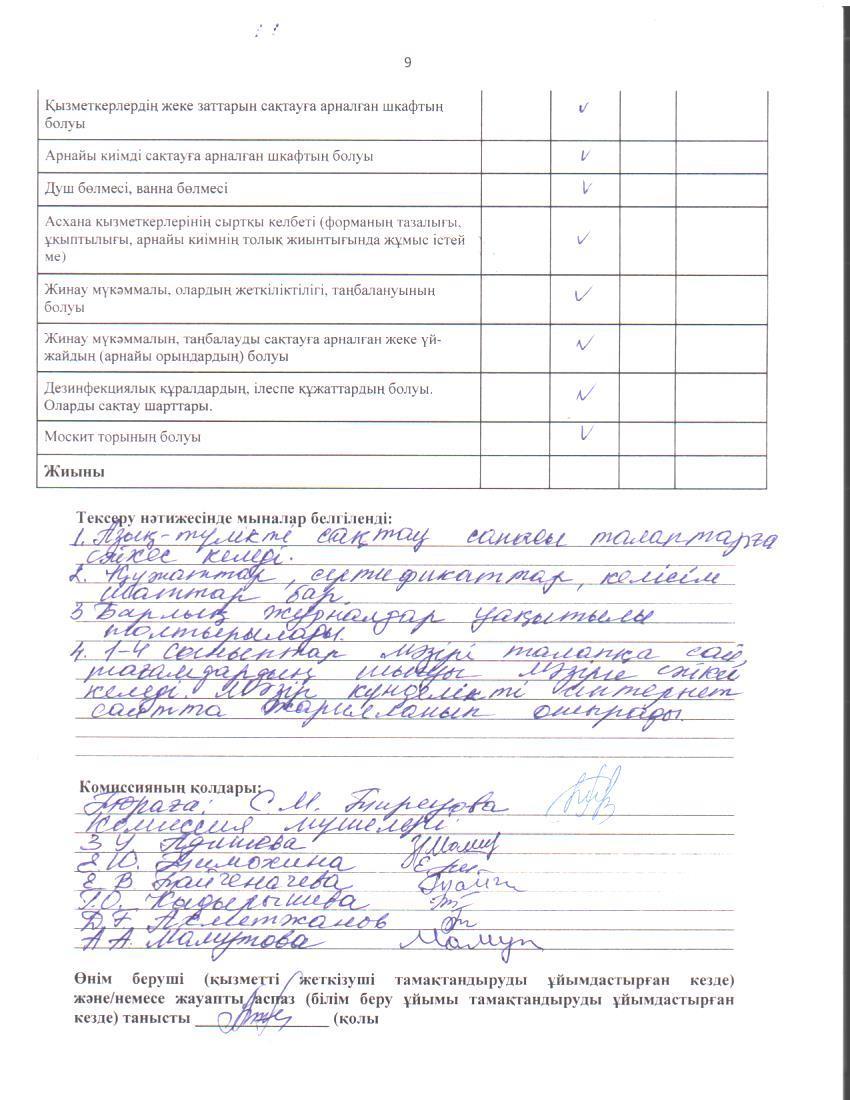 9
Қызметкерлердің жеке заттарын сақтауға арналған шкафтың
болуы
Арнайы киімді сақтауға арналған шкафтың болуы
Душ бөлмесі, ванна бөлмесі
Асхана қызметкерлерінің сыртқы келбеті (форманың тазалығы,
ұқыптылығы, арнайы киімнің толық жиынтығында жұмыс істей
ме)
Жинау мүкәммалы, олардың жеткіліктілігі, таңбалануының
болуы
Жинау мүкәммалын, таңбалауды сақтауға арналған жеке үй-
жайдың (арнайы орындардың) болуы
Дезинфекциялық құралдардың, ілеспе құжаттардың болуы.
Оларды сақтау шарттары.
Москит торының болуы
Жиыны
Тексеру нәтижесінде мыналар белгіленді:
1. Азық-түлікті сақтау сапасы талаптарға
сәйкес келеді.
2. Құжаттар, сертификаттар, келісім
шаттар бар.
3 Барлық журналдар уақытылы
толтырылады.
4. 1-4 сыныптар мәзірі талапқа сай,
тағамдардың шығуы мәзірге сәйкес
келеді. Мәзір күнделікті интернет
сайтта жарияланып отырады.
Комиссияның қолдары:
Төраға: С.М.
Комиссия мүшелері
З У Адишева
Е Ю. Тимохина
Е В Байгеначева
Г.О. Кыдырышева
Д Г Ахметжанов
А А. Мамутова Мамут
Өнім беруші (қызметті жеткізуші тамақтандыруды ұйымдастырған кезде)
және/немесе жауапты аспаз (білім беру ұйымы тамақтандыруды ұйымдастырған
кезде) танысты (қолы